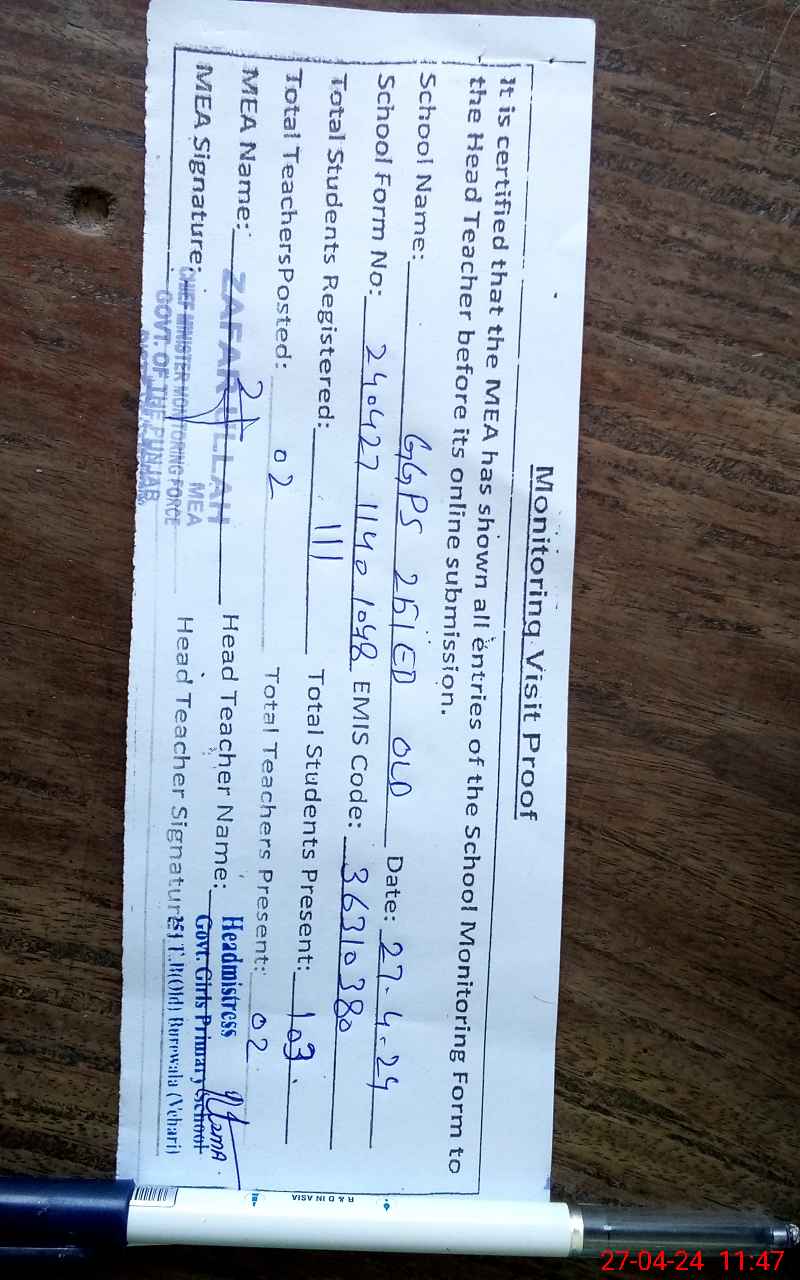 Monitoring Visit Proof
It is certified that the MEA has shown all entries of the School Monitoring Form to
the Head Teacher before its online submission.
School Name: GGPS 251 EB OLD Date: 27-4-24
School Form No: 240427 1140 1048 EMIS Code: 36310380
Total Students Registered: 111 Total Students Present: 103
Total TeachersPosted: 02 Total Teachers Present: 02
MEA Name: ZAFAR ULLAH Head Teacher Name: Headmistress
MEA
Govt. Girls Primary School
MEA Signature: CHIEF MINISTER MONITORING FORCE Head Teacher Signature 251 E.B(Old) Burewala (Vehari)
GOVT. OF THE PUNJAB
R & D IN ASIA
27-04-24 11:47